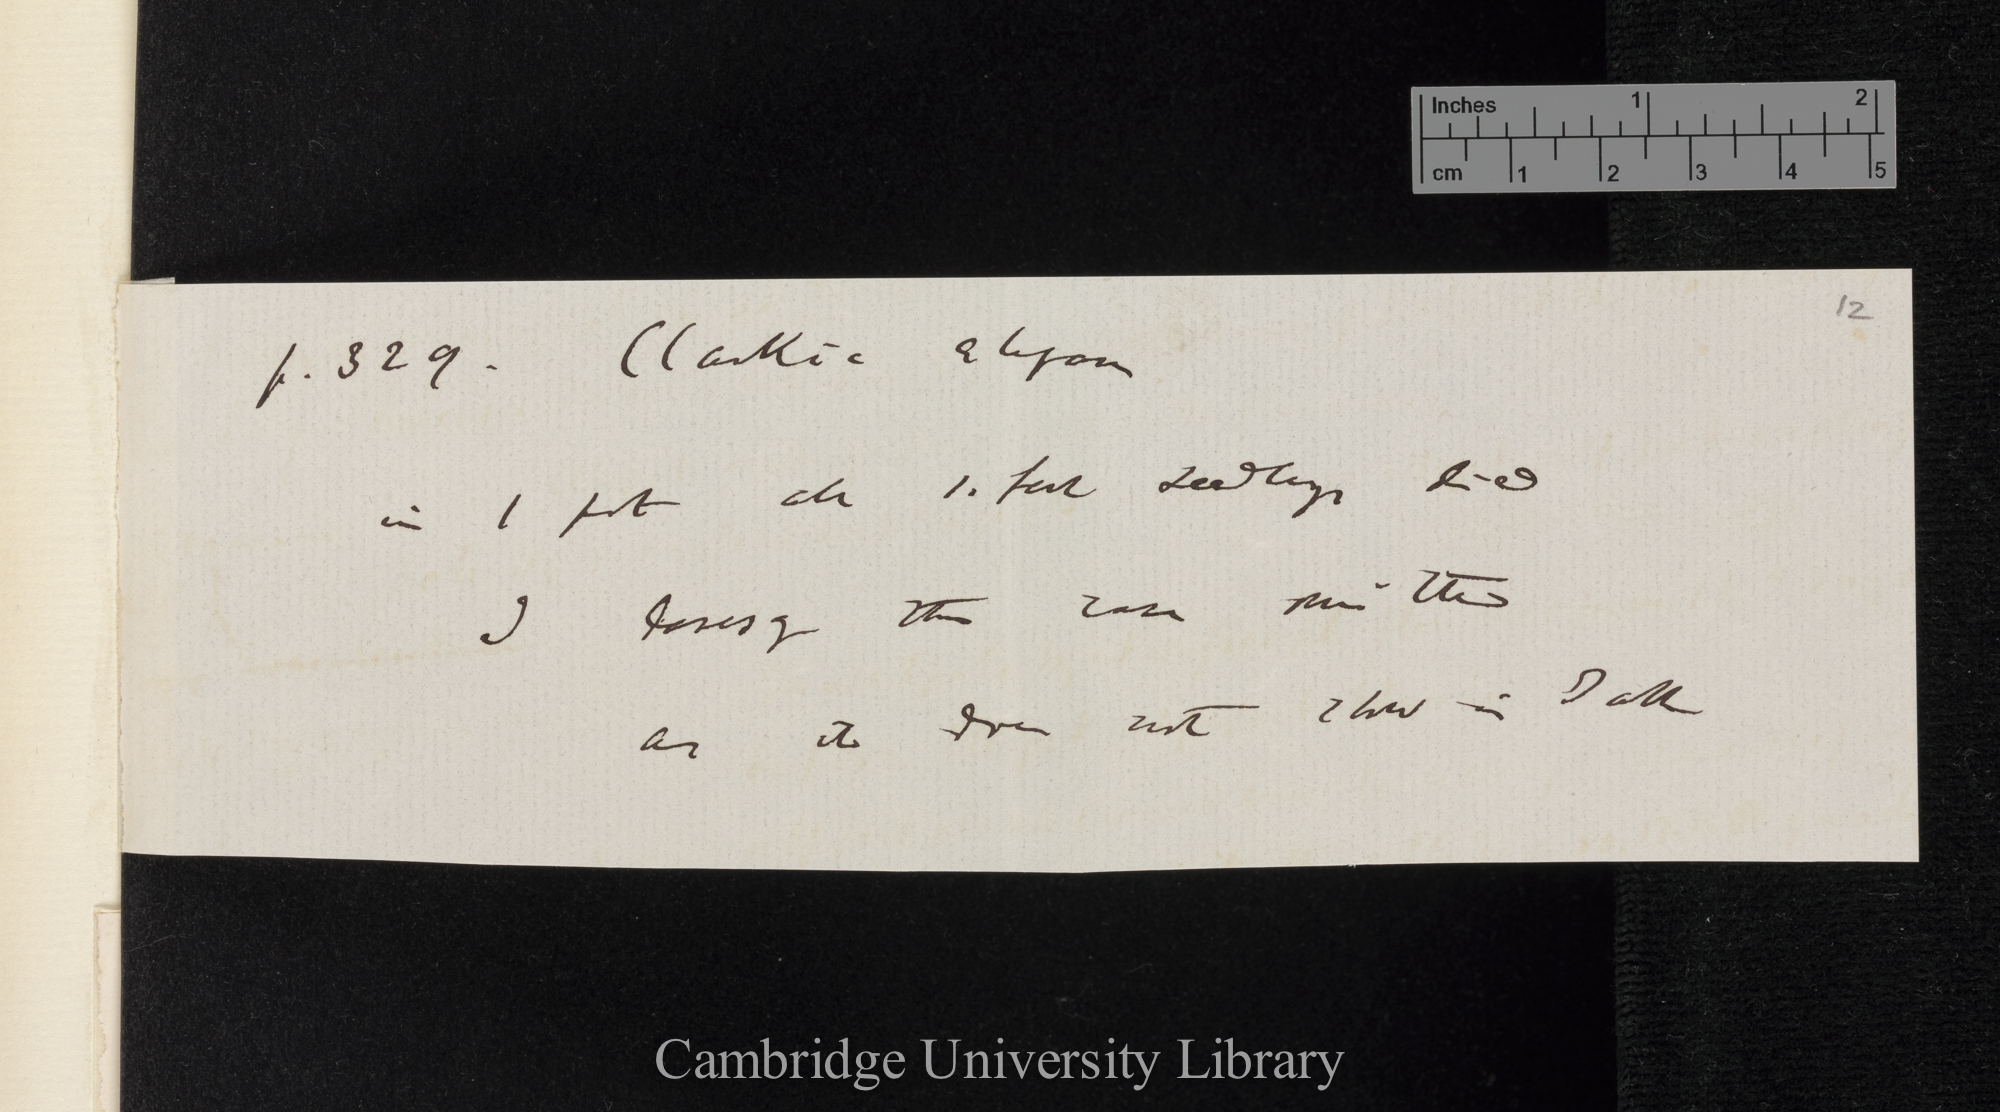 Inches 1 2
cm 1 2 3 4 5
12
p. 329. Clarkia elegans
in 1 pot all s. fert seedlings died
I this case
as it does not show in Table
Cambridge University Library